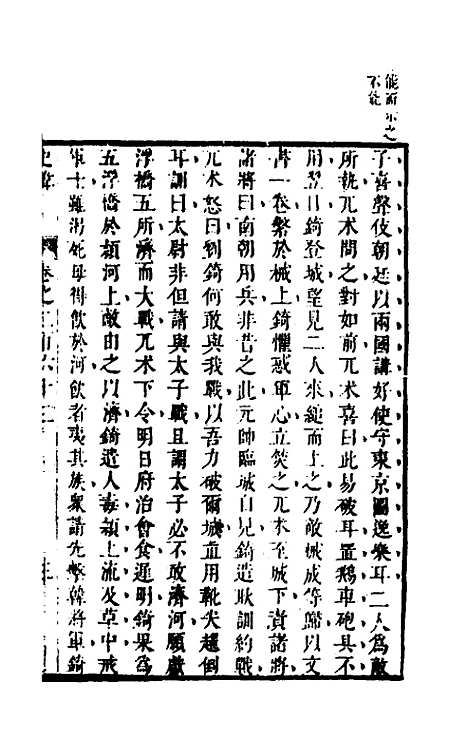 能斷示之
不能
子喜聲伎朝廷以兩國講好使守東京圖逸樂耳二人為敵
所執兀术問之對如前兀术喜曰此易破耳置鵝車砲具不
用翌日錡登城望見二人來縋而上之乃敵械成等歸以文
書一卷繫於械上錡懼惑軍心立焚之兀术至城下責諸將
諸將曰南朝用兵非昔之此元帥臨城自見錡遣耿訓約戰
兀术怒曰劉錡何敢與我戰以吾力破爾城直用靴尖趯倒
耳訓曰太尉非但請與太子戰且謂太子必不敢濟河願獻
浮橋五所濟而大戰兀术下令明日府治會食遲明錡果為
五浮橋於潁河上敵由之以濟錡遣人毒潁上流及草中戒
軍士雖渴死毋得飲於河飲者夷其族眾請先擊韓將軍錡
史 卷之